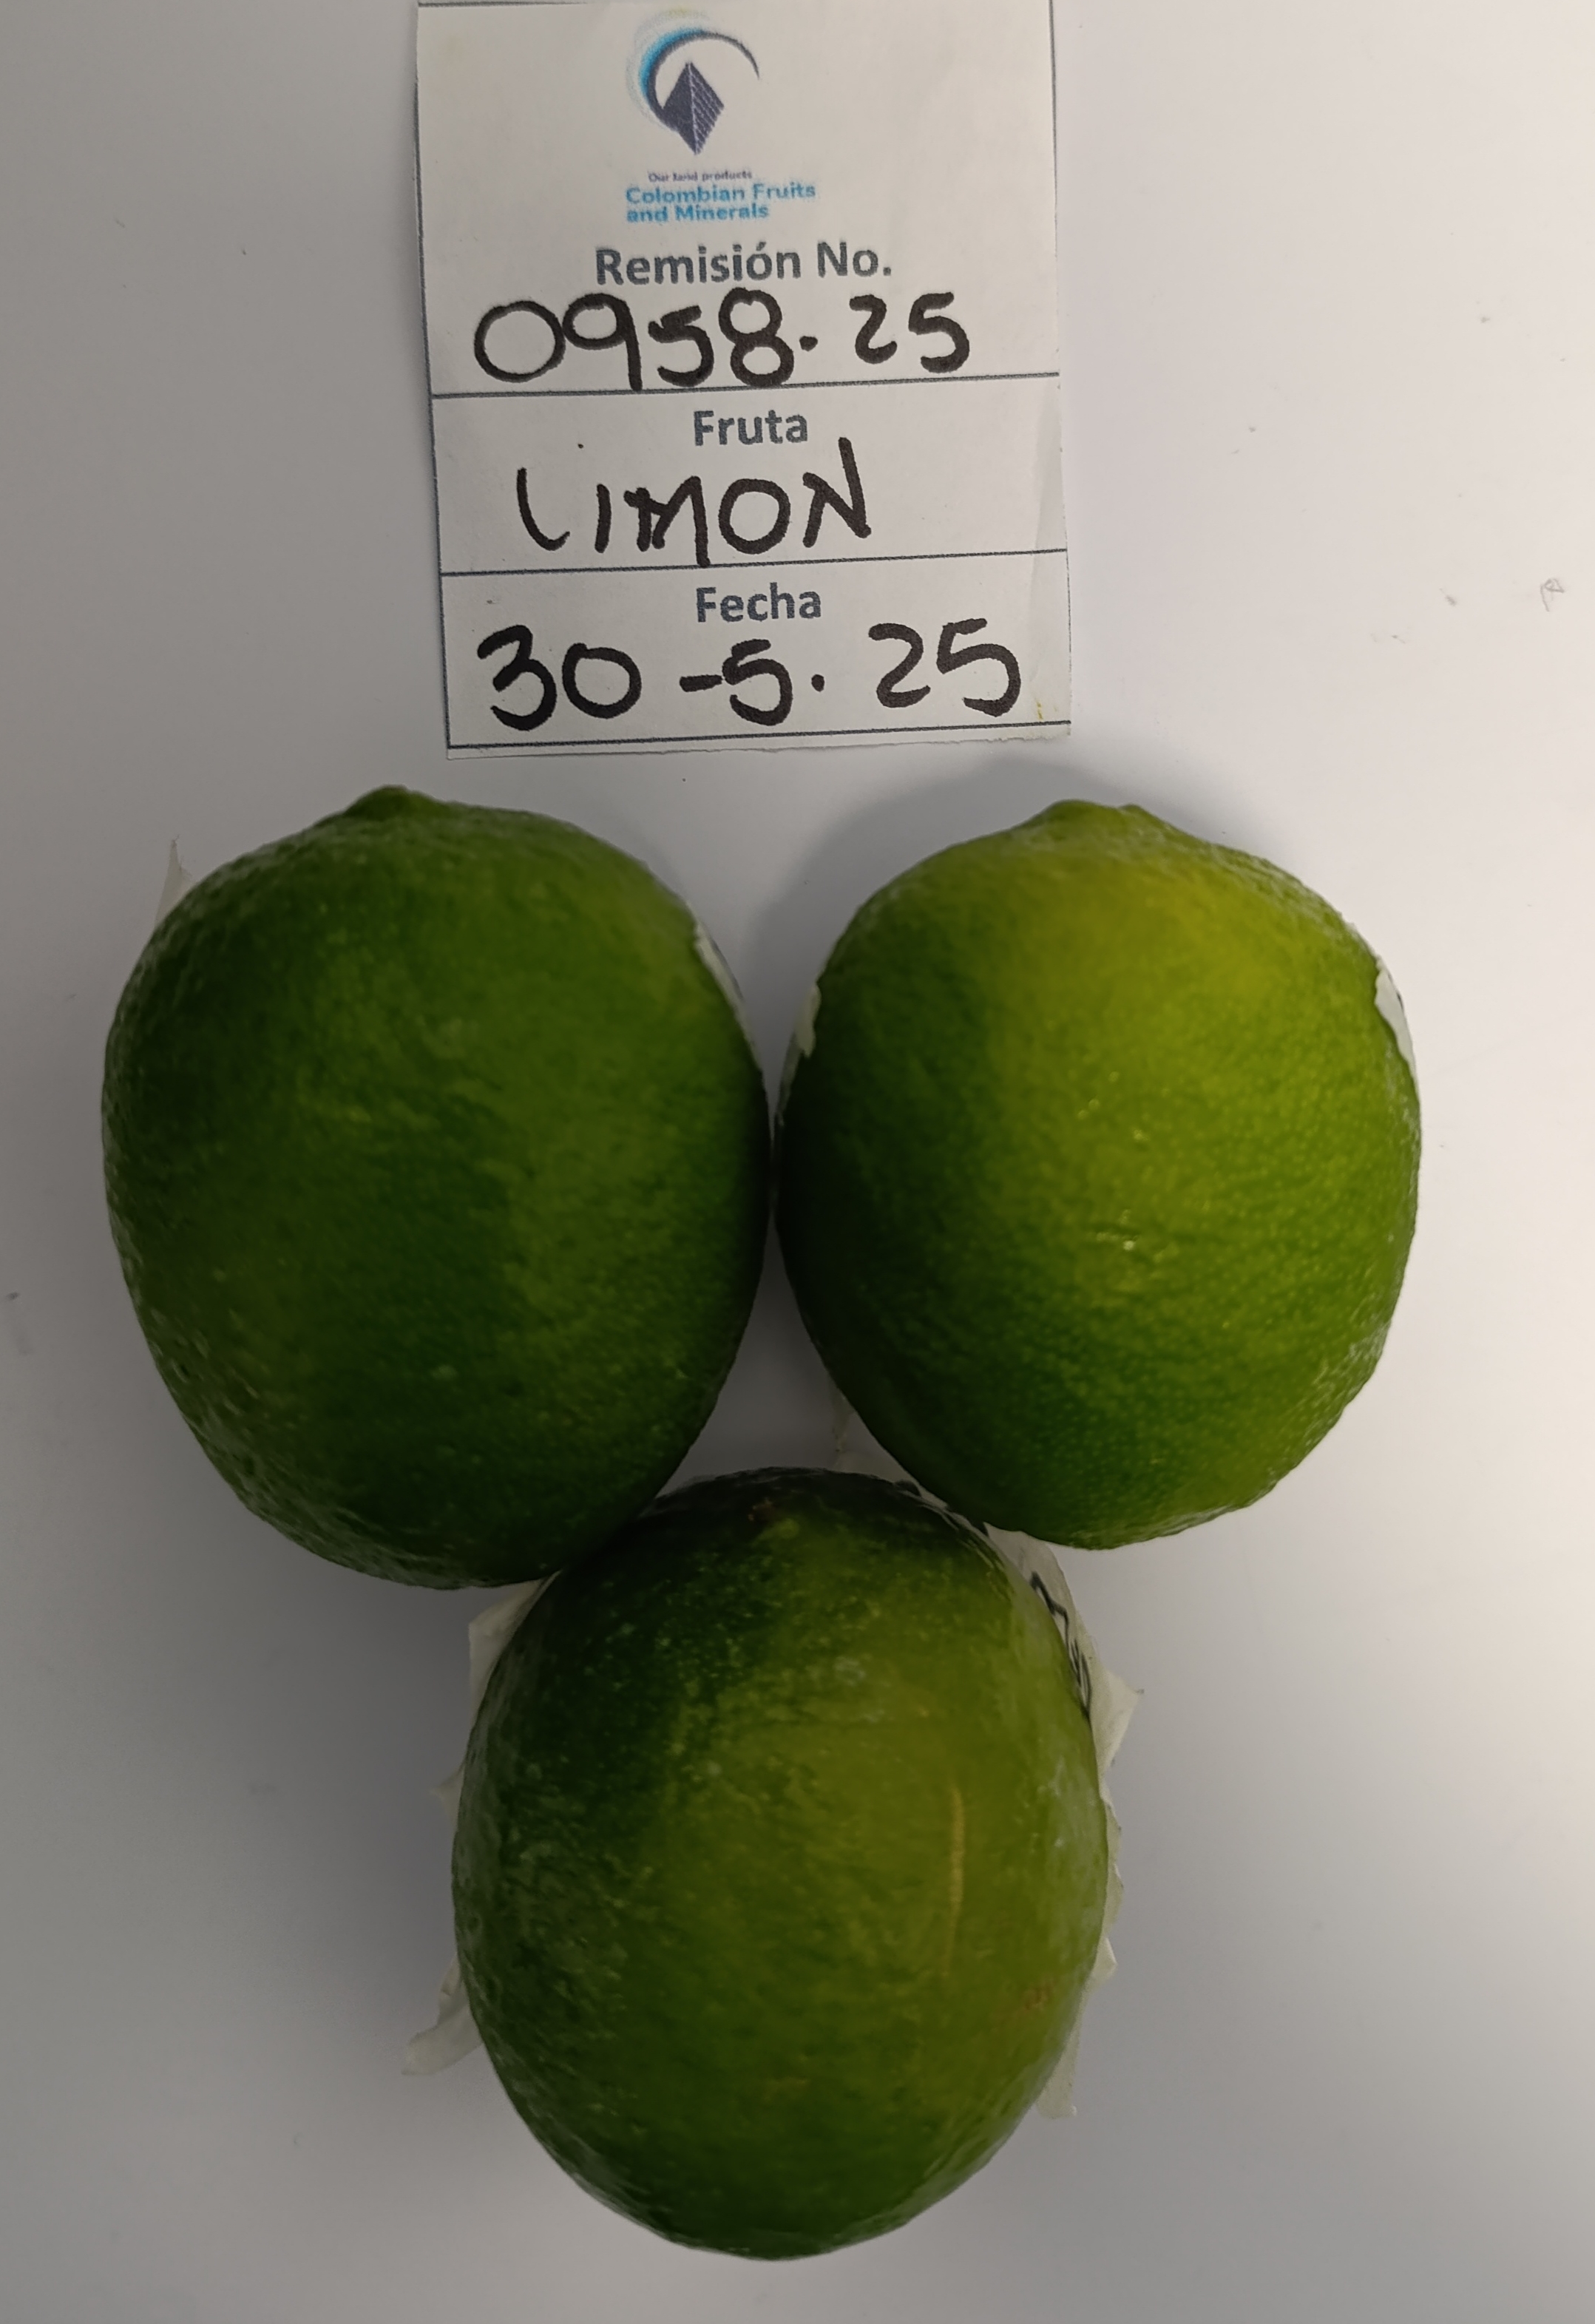 Our land products
Colombian Fruits
and Minerals
Remisión No.
0958.25
Fruta
LIMON
Fecha
30-5.25